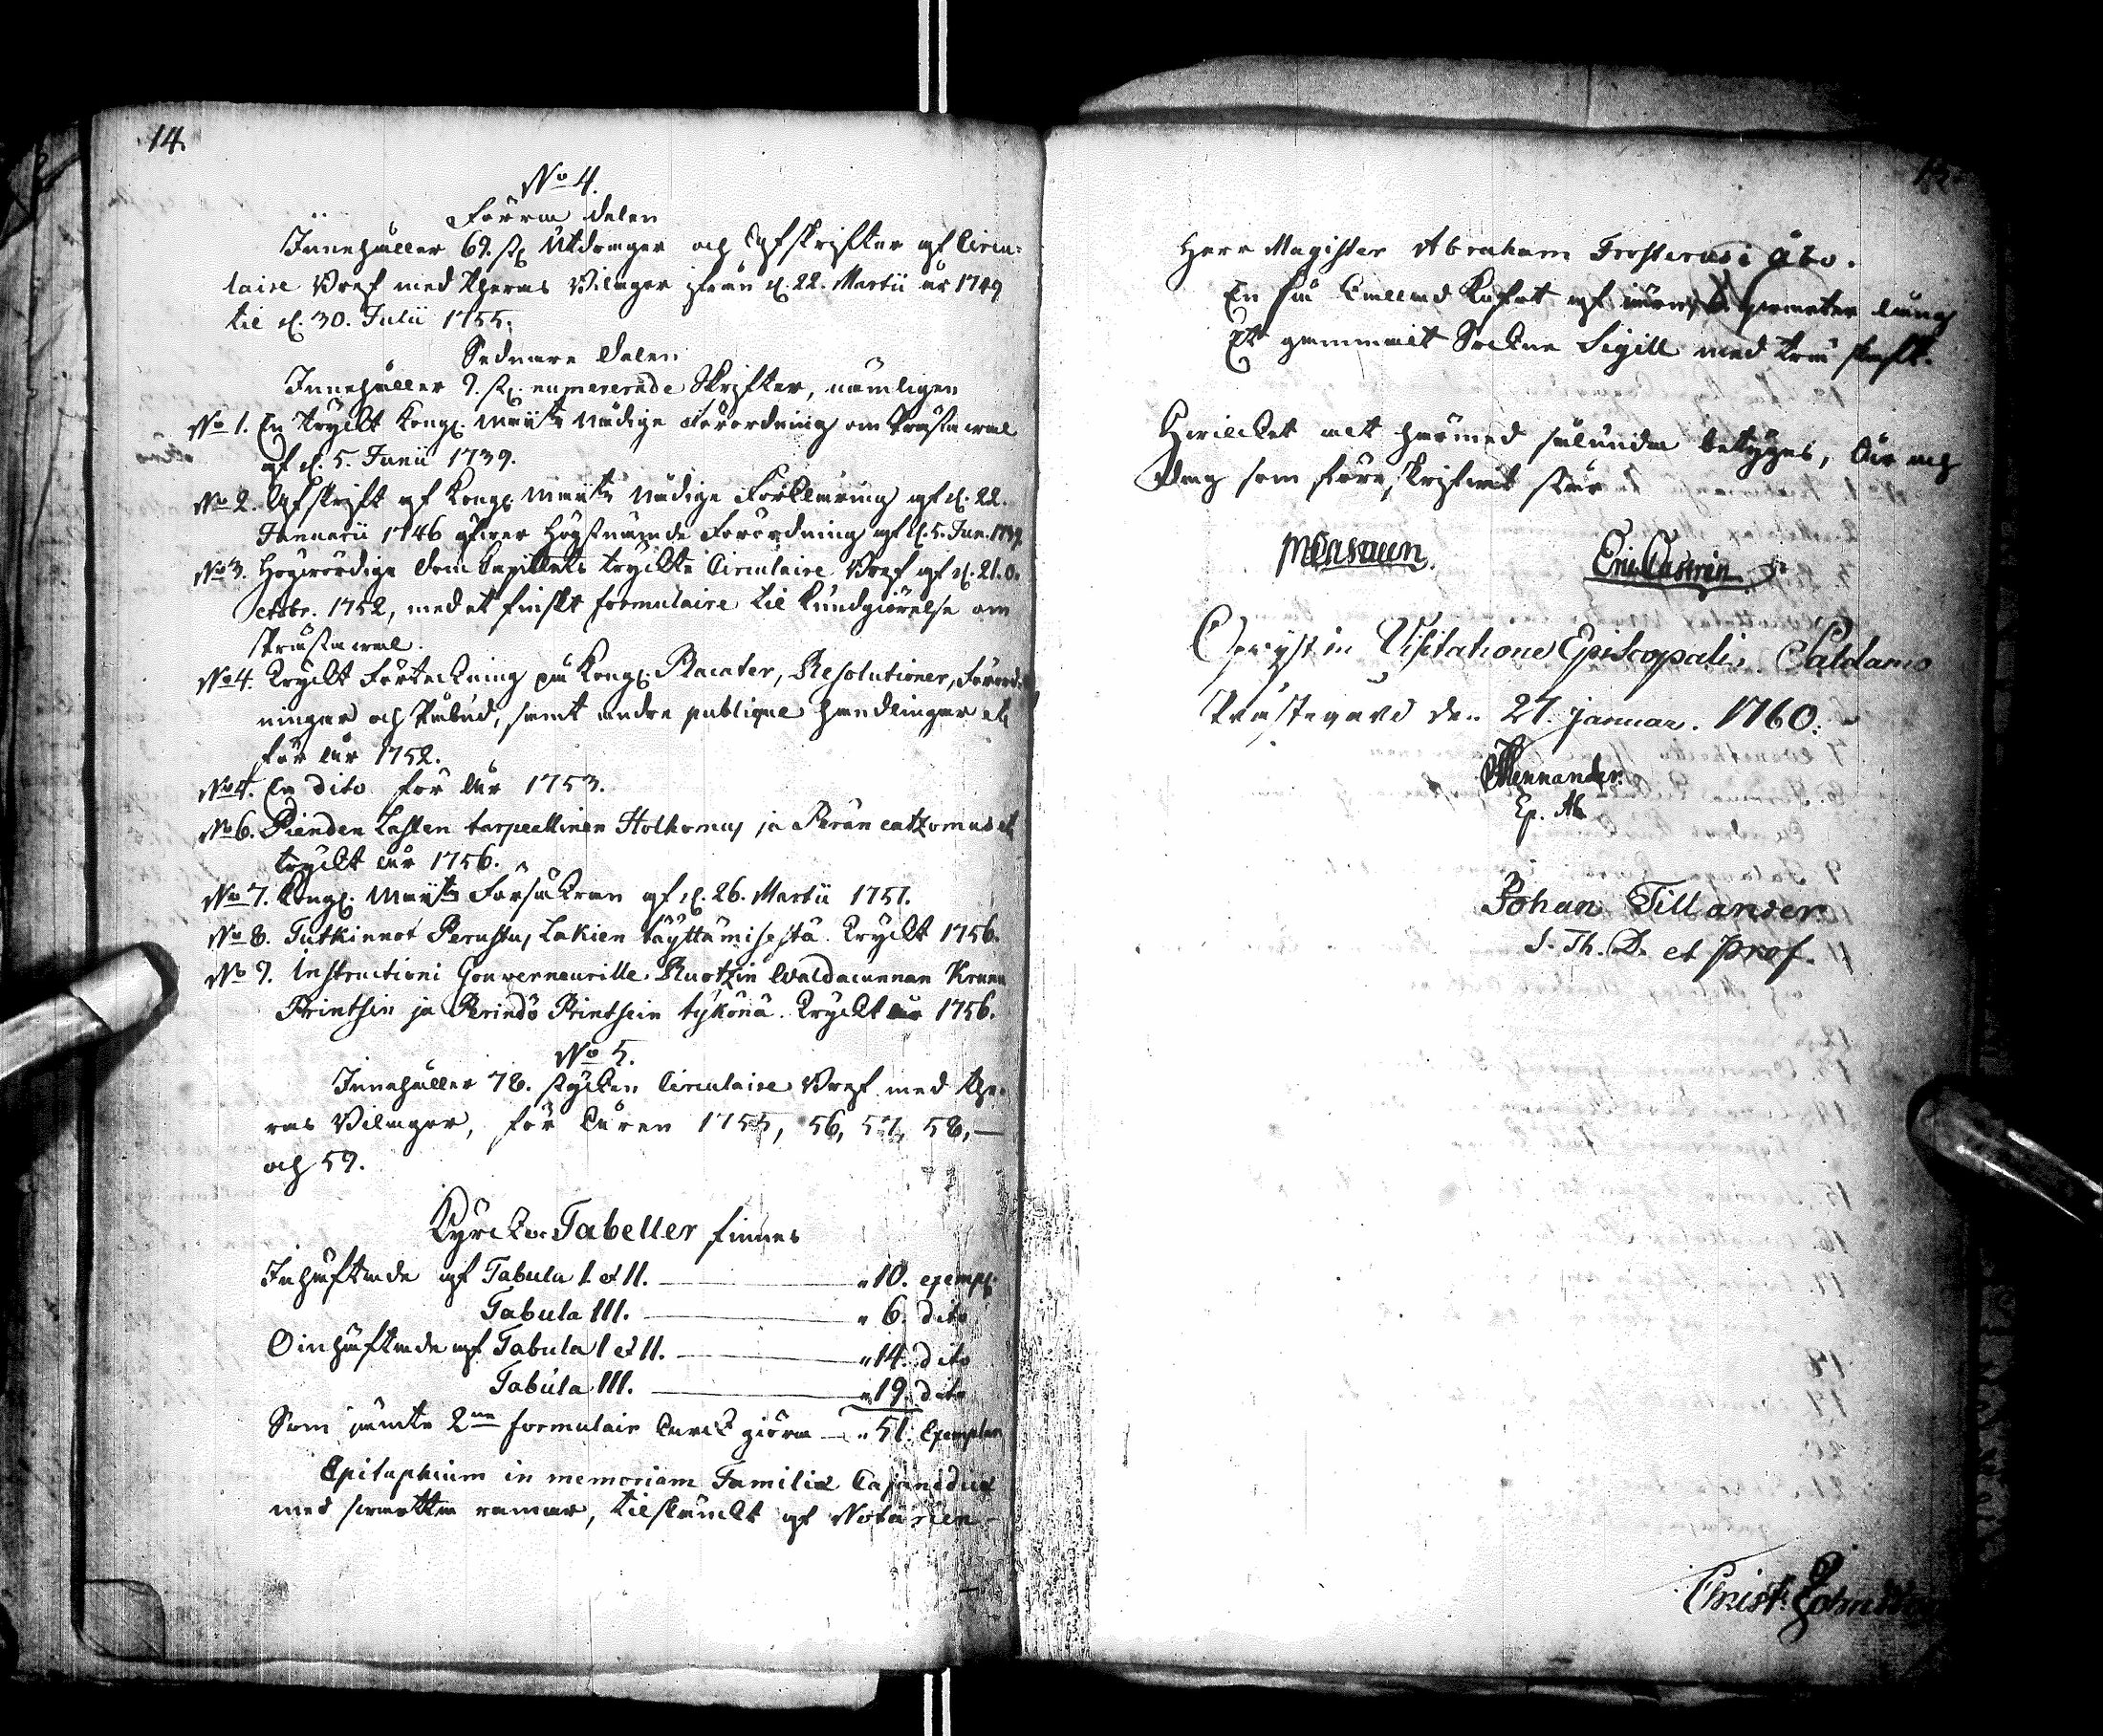 14.
No 4.
Förra delen
Innehåller 69. st. Utdrager och Afskrifter af Circu-
laire Bref med theras Bilagor ifrån d. 22. Martii år 1749
til d. 30. Julii 1755.
Sednare delen
Innehåller 9. st. enumererade Skrifter, nämligen
No 1. En tryckt Kongl. Maij:ts Nådige Förordning om Prästawal
af d. 5. Junii 1739.
No 2. Afskrift af Kongl. Maij:ts Nådige Förklaring af d. 22.
Januarii 1746 öfwer Högstnämde Förordning af d. 5. Jun. 1739
No 3. Högwördige Dom Capitlets tryckte Circulaire Bref af d. 21. O-
ctobr. 1752, med et finskt formulaire til kundgiörelse om
Prästawal.
No 4. Tryckt Förteckning på Kongl. Placater, Resolutioner, Förord-
ningar och Påbud, samt andre publique handlingar
för år 1752.
No 4. En dito för år 1753.
No 6. Pienden Lasten tarpeellinen Holhomus ja Perän catzomus
tryckt år 1756.
No 7. Kongl. Maij:ts Försäkran af d. 26. Martii 1751.
No 8. Tutkinnot Perustus Lakien täyttämisestä. Tryckt 1756.
No 9. Instructioni Gouverneurille Ruotzin Waldacunnan Krunu
Printsin ja Perindö Printsein tykönä. Tryckt år 1756.
No 5.
Innehåller 78. stycken Circulaire Bref med the-
ras Bilagor, för åren 1755, 56, 57, 58, —
och 59.
Kyrcko Tabeller finnes
Inhäftade af Tabula I et II. — " 10. exempl.
Tabula III. — " 6. dito
Oinhäftade af Tabula I et II. — " 14. dito
Tabula III. — " 19. dito
Som jämte 2ne formulair Carck giöra — " 51. Exemplar
Epitaphium in memoriam Familiæ Cajanidum
med swarta ramar, tilskänckt af Notarien
15.
Herr Magister Abraham Frosterus i Åbo.
En kofot af qwarter lång
Ett gammalt Sockne Sigill med trä skaft.
Hwilcket alt härmed sålunda betyges, år och
dag som före skrifwit står
M Casteen. Eric Castrén
Opwist in Visitatione Episcopali i Paldamo
Prästegård den 27. Januar. 1760.
Mennander.
Ep. Ab
Johan Tillander
S. Th. D. et Prof.
Christ.